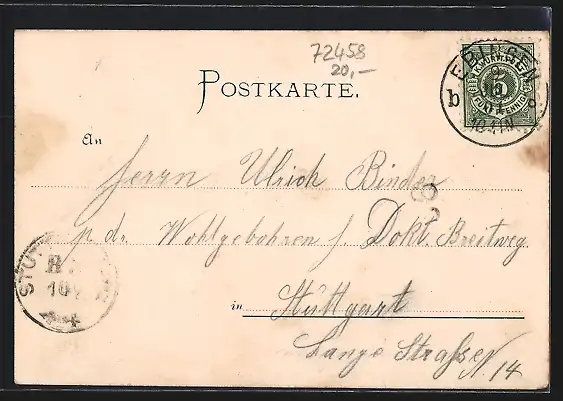 72458
20,-
POSTKARTE.
EBINGEN
b
FÜNF PFENNIG
An
Herrn Ulrich Binder
p. d. Wohlgebohren f. Dokt. Breitweg.
in Stuttgart
Lange Strasse N. 14